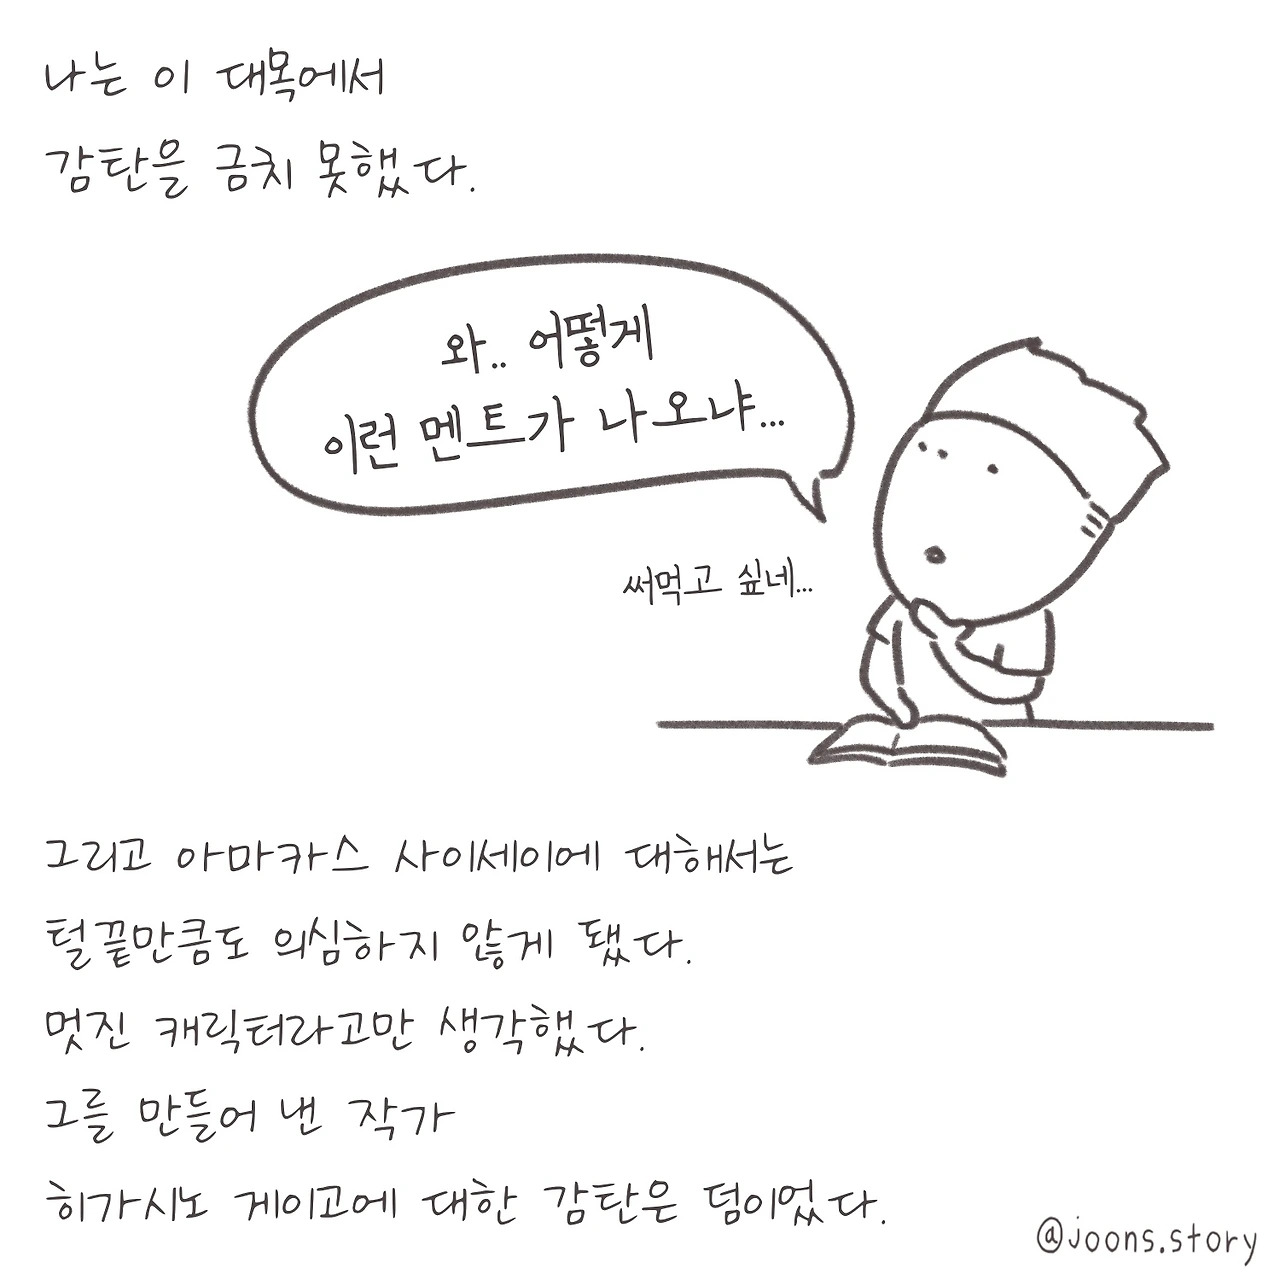 나는 이 대목에서
감탄을 금치 못했다.
와.. 어떻게
이런 멘트가 나오냐...
써먹고 싶네...
그리고 아마카스 사이세이에 대해서는
털끝만큼도 의심하지 않게 됐다.
멋진 캐릭터라고만 생각했다.
그를 만들어 낸 작가
히가시노 게이고에 대한 감탄은 덤이었다.
@joons.story